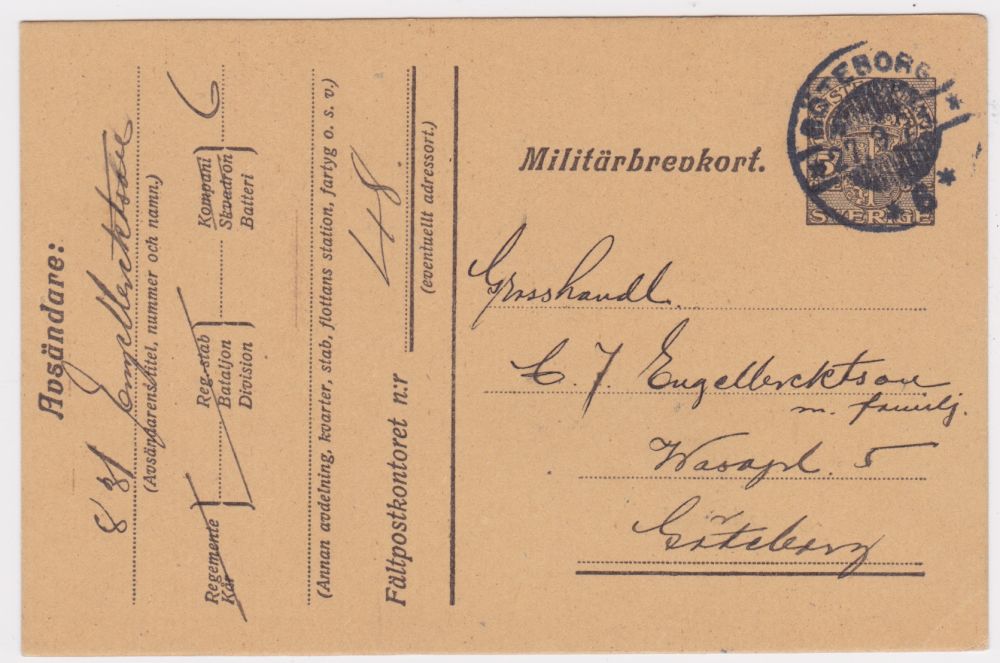 Avsändare:
831 Engellercktson
(Avsändarens titel, nummer och namn.)
Regemente
Kår
Reg-stab
Bataljon
Division
Kompani
Skvadron
Batteri
6
(Annan avdelning, kvarter, stab, flottans station, fartyg o. s. v.)
Fältpostkontoret n:r 48.
(eventuellt adressort.)
Militärbrevkort.
GÖTEBORG
5
SVERIGE
Grosshandl.
C. J. Engellercktson
m. familj.
Wasapl. 5
Göteborg